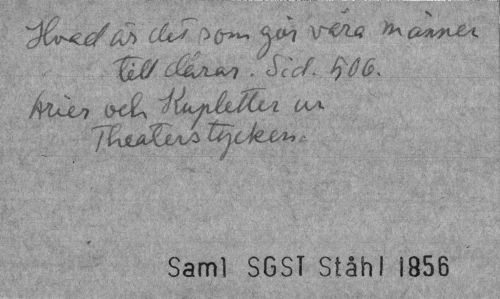 Hvad är det som gör våra männer
till dårar. Sid. 506.
Arier och Kupletter ur
Theaterstycken.
Saml SGST Ståhl 1856